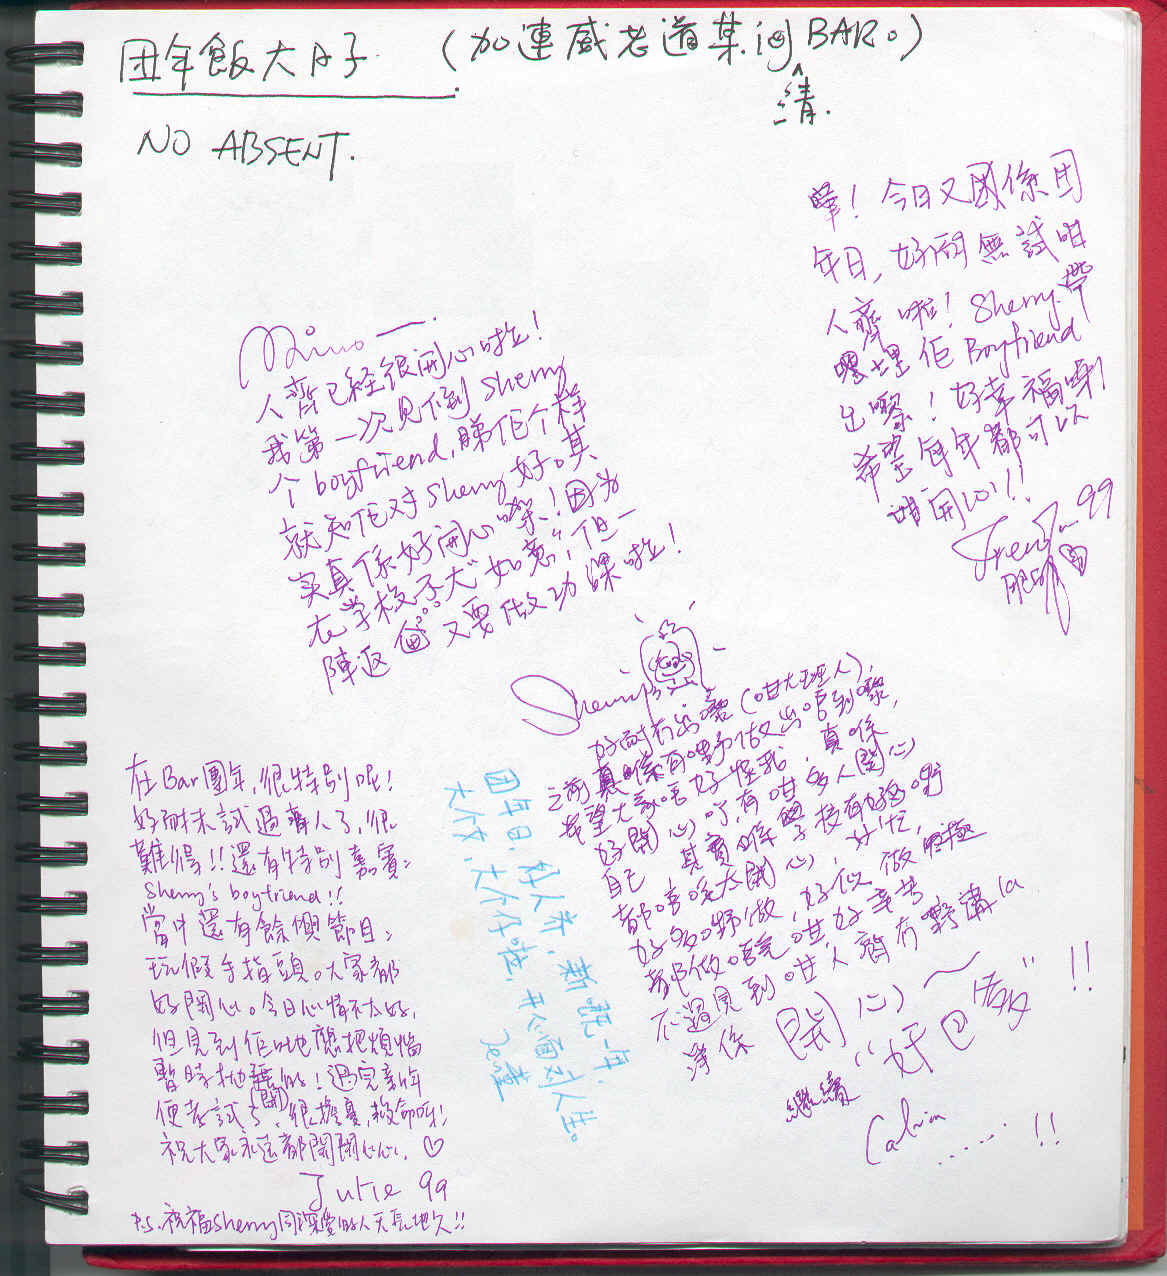 团年飯大日子 (加連威老道某間清BAR。)
NO ABSENT.
嘩!今日又係团
年日,好耐無試咁
人齊啦!Sherry帶
嚟埋佢Boyfriend
出嚟!好幸福喲!
希望每年都可以
咁開心!!
99
人齊已经很開心啦!
我第一次見到Sherry
个boyfriend,睇佢个样
就知佢对Sherry好。其
实真係好開心㗎!因为
在学校不太"如意",但一
陣返 又要做功課啦!
Sherry's
好耐冇出嚟(咁大班人),
希望大家唔好怪我,真係
好開心,有咁多人開心
自己,其實係學校有好多嘢
都唔係太開心,好忙,
好多嘢做,好似做極
都做唔完咁好辛苦
不過見到咁人齊有嘢講
淨係開心~
繼續"好日子"!!
Calvin ......!!
团年日,好人齐,新既一年,
大个女,大个仔啦,开心面对人生。
在Bar團年,很特別呢!
好耐未試過齊人了,很
難得!!還有特別嘉賓:
Sherry's boyfriend!!
當中還有餘興節目:
玩假手指頭。大家都
好開心。今日心情不太好,
但見到佢哋應把煩惱
暫時拋離(開)啲!過完新年
便考試了,很擔憂,救命呀!
祝大家永遠都開開心心。♡
Julie 99
P.S.祝福Sherry同深愛的人天長地久!!